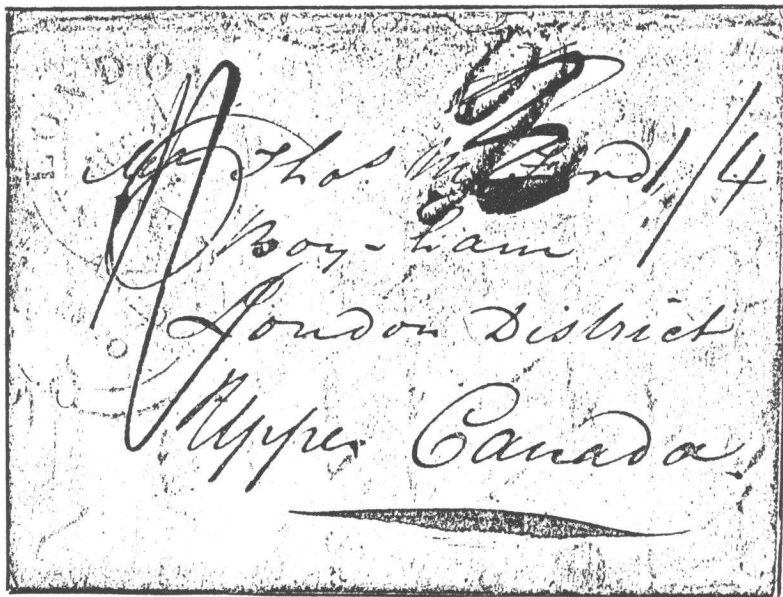 LONDO
Mr. Thos. M. Ford 1/4
Boy-ham
London District
Upper Canada.